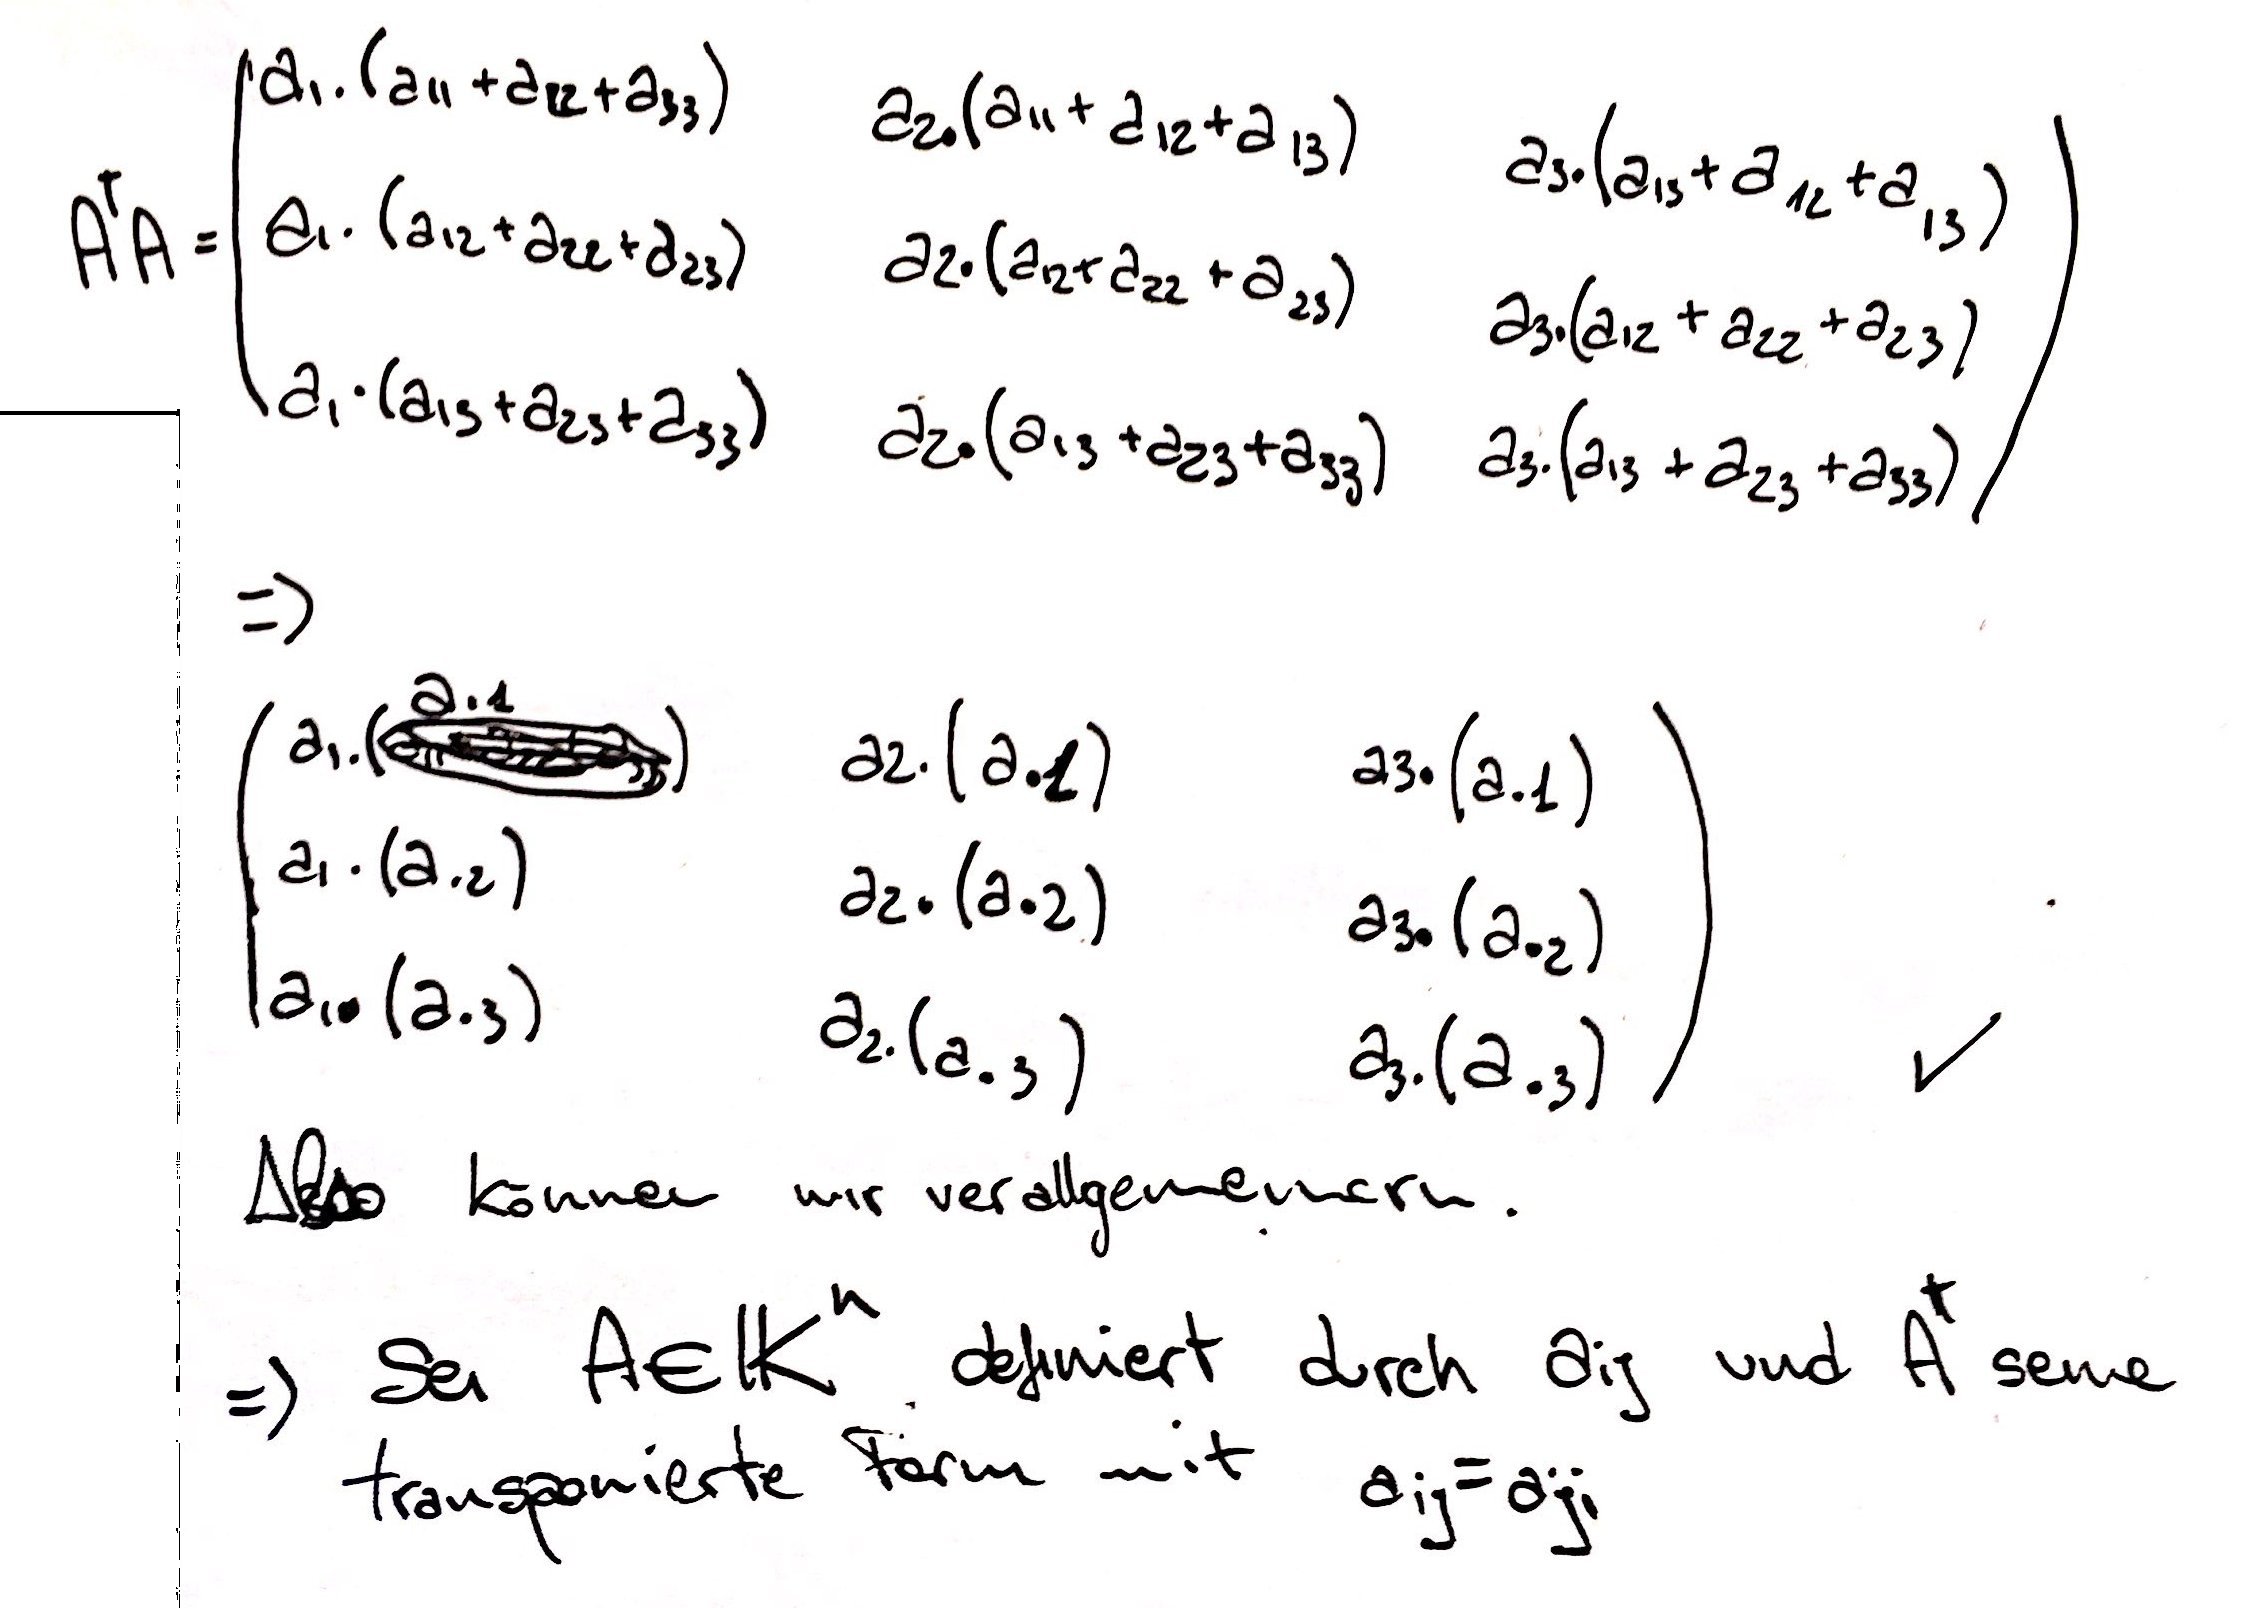 a₁.(a₁₁ + a₁₂ + a₃₃) a₂.(a₁₁ + a₁₂ + a₁₃) a₃.(a₁₃ + a₁₂ + a₁₃)
AᵀA = a₁.(a₁₂ + a₂₂ + a₂₃) a₂.(a₁₂ + a₂₂ + a₂₃) a₃.(a₁₂ + a₂₂ + a₂₃)
a₁.(a₁₃ + a₂₃ + a₃₃) a₂.(a₁₃ + a₂₃ + a₃₃) a₃.(a₁₃ + a₂₃ + a₃₃)
=>
a₁.(a.₁) a₂.(a.₁) a₃.(a.₁)
a₁.(a.₂) a₂.(a.₂) a₃.(a.₂)
a₁.(a.₃) a₂.(a.₃) a₃.(a.₃) ✓
Also können wir verallgemeinern.
=> Sei A∈𝕂ⁿ definiert durch aᵢⱼ und Aᵗ seine
transponierte Form mit aᵢⱼ = aⱼᵢ